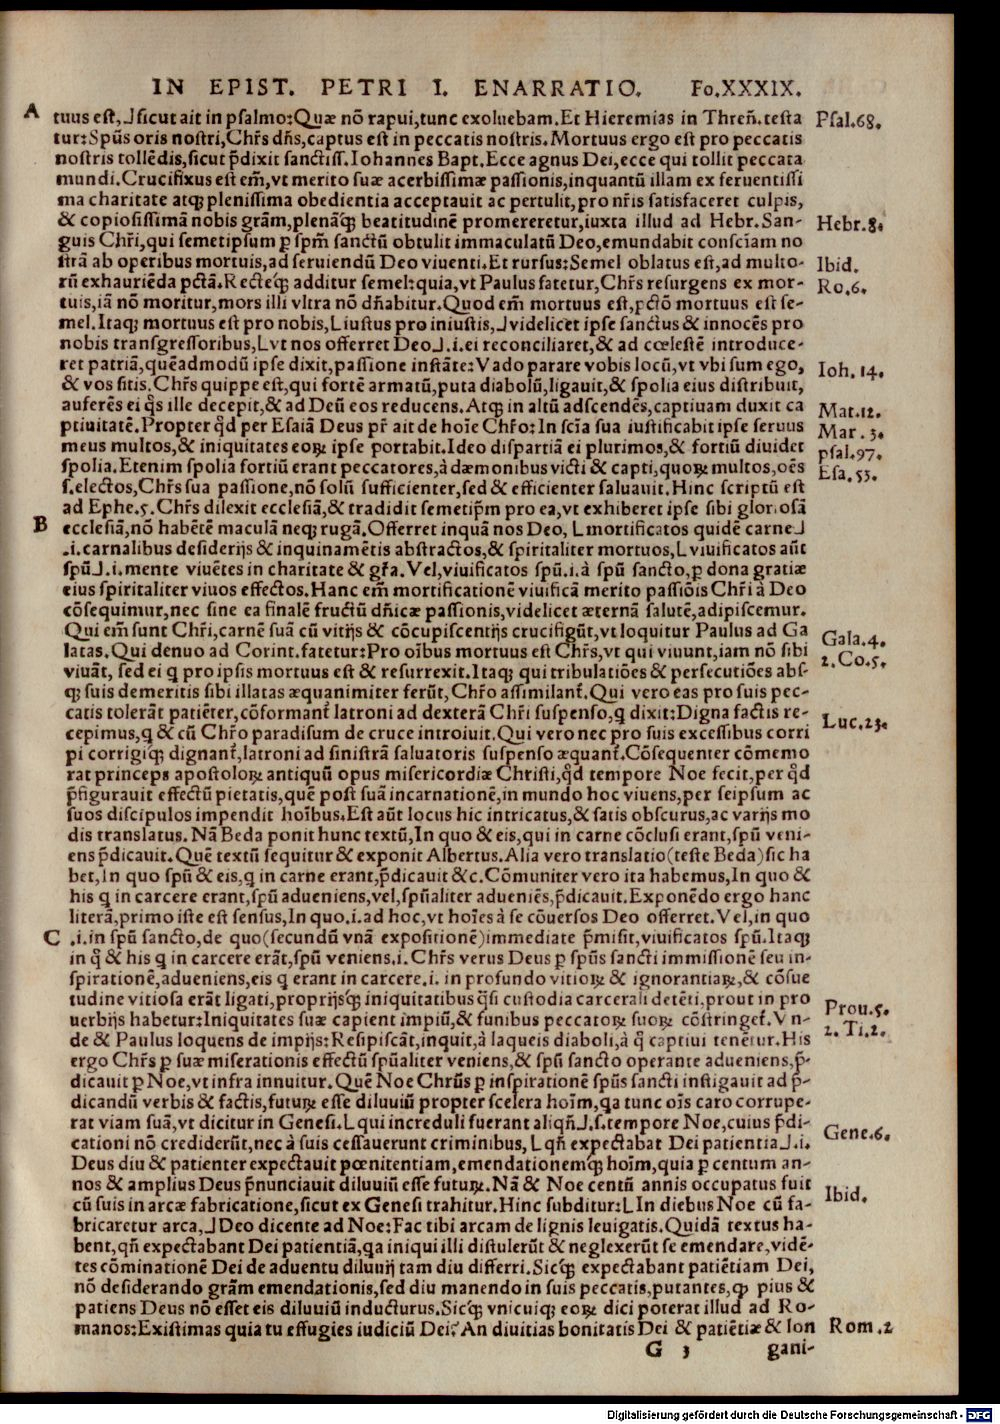 IN EPIST. PETRI I. ENARRATIO. Fo.XXXIX.
A tuus est,⅃sicut ait in psalmo:Quæ nō rapui,tunc exoluebam.Et Hieremias in Threñ.testa Psal.68.
tur:Spūs oris nostri,Chr̄s dñs,captus est in peccatis nostris.Mortuus ergo est pro peccatis
nostris tollēdis,sicut p̄dixit sanctiss.Iohannes Bapt.Ecce agnus Dei,ecce qui tollit peccata
mundi.Crucifixus est em̄,vt merito suæ acerbissimæ passionis,inquantū illam ex feruentissi
ma charitate atqȝ plenissima obedientia acceptauit ac pertulit,pro nr̄is satisfaceret culpis,
& copiosissimā nobis grām,plenāqȝ beatitudinē promereretur,iuxta illud ad Hebr.San- Hebr.8.
guis Chr̄i,qui semetipsum ꝑ spm̄ sanctū obtulit immaculatū Deo,emundabit consciam no
strā ab operibus mortuis,ad seruiendū Deo viuenti.Et rursus:Semel oblatus est,ad multo- Ibid.
rū exhauriēda pctā.Recteqȝ additur semel:quia,vt Paulus fatetur,Chr̄s resurgens ex mor- Ro.6.
tuis,iā nō moritur,mors illi vltra nō dñabitur.Quod em̄ mortuus est,pctō mortuus est se-
mel.Itaqȝ mortuus est pro nobis,Liustus pro iniustis,⅃videlicet ipse sanctus & innocēs pro
nobis transgressoribus,Lvt nos offerret Deo⅃.i.ei reconciliaret,& ad cœlestē introduce-
ret patriā,quēadmodū ipse dixit,passione instāte:Vado parare vobis locū,vt vbi sum ego, Ioh. 14.
& vos sitis.Chr̄s quippe est,qui fortē armatū,puta diabolū,ligauit,& spolia eius distribuit,
auferēs ei q̄s ille decepit,& ad Deū eos reducens.Atqȝ in altū adscendēs,captiuam duxit ca Mat.12.
ptiuitatē.Propter qd per Esaiā Deus pr̄ ait de hoīe Chr̄o:In scīa sua iustificabit ipse seruus Mar. 3.
meus multos,& iniquitates eoꝝ ipse portabit.Ideo dispartiā ei plurimos,& fortiū diuidet psal.97.
spolia.Etenim spolia fortiū erant peccatores,à dæmonibus victi & capti,quoꝝ multos,oēs Esa. 53.
s.electos,Chr̄s sua passione,nō solū sufficienter,sed & efficienter saluauit.Hinc scriptū est
ad Ephe.5.Chr̄s dilexit ecclesiā,& tradidit semetip̄m pro ea,vt exhiberet ipse sibi gloriosā
B ecclesiā,nō habētē maculā neqȝ rugā.Offerret inquā nos Deo, Lmortificatos quidē carne⅃
.i.carnalibus desiderijs & inquinamētis abstractos,& spiritaliter mortuos,Lviuificatos aūt
spū⅃.i.mente viuētes in charitate & gr̄a.Vel,viuificatos spū.i.à spū sancto,ꝑ dona gratiæ
eius spiritaliter viuos effectos.Hanc em̄ mortificationē viuificā merito passiōis Chr̄i à Deo
cōsequimur,nec sine ea finalē fructū dñicæ passionis,videlicet æternā salutē,adipiscemur.
Qui em̄ sunt Chr̄i,carnē suā cū vitijs & cōcupiscentijs crucifigūt,vt loquitur Paulus ad Ga Gala.4.
latas.Qui denuo ad Corint.fatetur:Pro oībus mortuus est Chr̄s,vt qui viuunt,iam nō sibi 2.Co.5.
viuāt, sed ei q pro ipsis mortuus est & resurrexit.Itaqȝ qui tribulatiōes & persecutiōes abs-
qȝ suis demeritis sibi illatas æquanimiter ferūt,Chr̄o assimilant̄.Qui vero eas pro suis pec-
catis tolerāt patiēter,cōformant̄ latroni ad dexterā Chr̄i suspenso,q dixit:Digna factis re- Luc.23.
cepimus,q & cū Chr̄o paradisum de cruce introiuit.Qui vero nec pro suis excessibus corri
pi corrigiqȝ dignant̄,latroni ad sinistrā saluatoris suspenso æquant̄.Cōsequenter cōmemo
rat princeps apostoloꝝ antiquū opus misericordiæ Christi,qd tempore Noe fecit,per qd
p̄figurauit effectū pietatis,quē post suā incarnationē,in mundo hoc viuens,per seipsum ac
suos discipulos impendit hoībus.Est aūt locus hic intricatus,& satis obscurus,ac varijs mo
dis translatus. Nā Beda ponit hunc textū,In quo & eis,qui in carne cōclusi erant,spū veni-
ens p̄dicauit.Quē textū sequitur & exponit Albertus.Alia vero translatio(teste Beda)sic ha
bet,In quo spū & eis,q in carne erant,p̄dicauit &c.Cōmuniter vero ita habemus,In quo &
his q in carcere erant,spū adueniens,vel,spūaliter adueniēs,p̄dicauit.Exponēdo ergo hanc
literā,primo iste est sensus,In quo.i.ad hoc,vt hoīes à se cōuersos Deo offerret.Vel,in quo
C .i.in spū sancto,de quo(secundū vnā expositionē)immediate p̄misit,viuificatos spū.Itaqȝ
in q & his q in carcere erāt,spū veniens.i.Chr̄s verus Deus ꝑ spūs sancti immissionē seu in-
spirationē,adueniens,eis q erant in carcere.i. in profundo vitioꝝ & ignorantiaꝝ,& cōsue
tudine vitiosa erāt ligati,proprijsqȝ iniquitatibus qsi custodia carcerali detēti,prout in pro Prou.5.
uerbijs habetur:Iniquitates suæ capient impiū,& funibus peccatoꝝ suoꝝ cōstringet̄.Vn- 2. Ti.2.
de & Paulus loquens de impijs:Resipiscāt,inquit,à laqueis diaboli,à q captiui tenētur.His
ergo Chr̄s ꝑ suæ miserationis effectū spūaliter veniens,& spū sancto operante adueniens,p̄-
dicauit ꝑ Noe,vt infra innuitur.Quē Noe Chrūs ꝑ inspirationē spūs sancti instigauit ad p̄-
dicandū verbis & factis,futuꝝ esse diluuiū propter scelera hoīm,qa tunc oīs caro corrupe-
rat viam suā,vt dicitur in Genesi.Lqui increduli fuerant aliqñ⅃.s.tempore Noe,cuius p̄di- Gene.6.
cationi nō crediderūt,nec à suis cessauerunt criminibus, Lqñ expectabat Dei patientia⅃.i.
Deus diu & patienter expectauit pœnitentiam,emendationemqȝ hoīm,quia ꝑ centum an-
nos & amplius Deus p̄nunciauit diluuiū esse futuꝝ.Nā & Noe centū annis occupatus fuit Ibid.
cū suis in arcæ fabricatione,sicut ex Genesi trahitur.Hinc subditur:LIn diebus Noe cū fa-
bricaretur arca,⅃Deo dicente ad Noe:Fac tibi arcam de lignis leuigatis.Quidā textus ha-
bent,qñ expectabant Dei patientiā,qa iniqui illi distulerūt & neglexerūt se emendare,vidē-
tes cōminationē Dei de aduentu diluuij tam diu differri.Sicqȝ expectabant patiētiam Dei,
nō desiderando grām emendationis,sed diu manendo in suis peccatis,putantes,ꝙ pius &
patiens Deus nō esset eis diluuiū inducturus.Sicqȝ vnicuiqȝ eoꝝ dici poterat illud ad Ro-
manos:Existimas quia tu effugies iudiciū Dei? An diuitias bonitatis Dei & patiētiæ & lon Rom.2
G 3 gani-
Digitalisierung gefördert durch die Deutsche Forschungsgemeinschaft - DFG